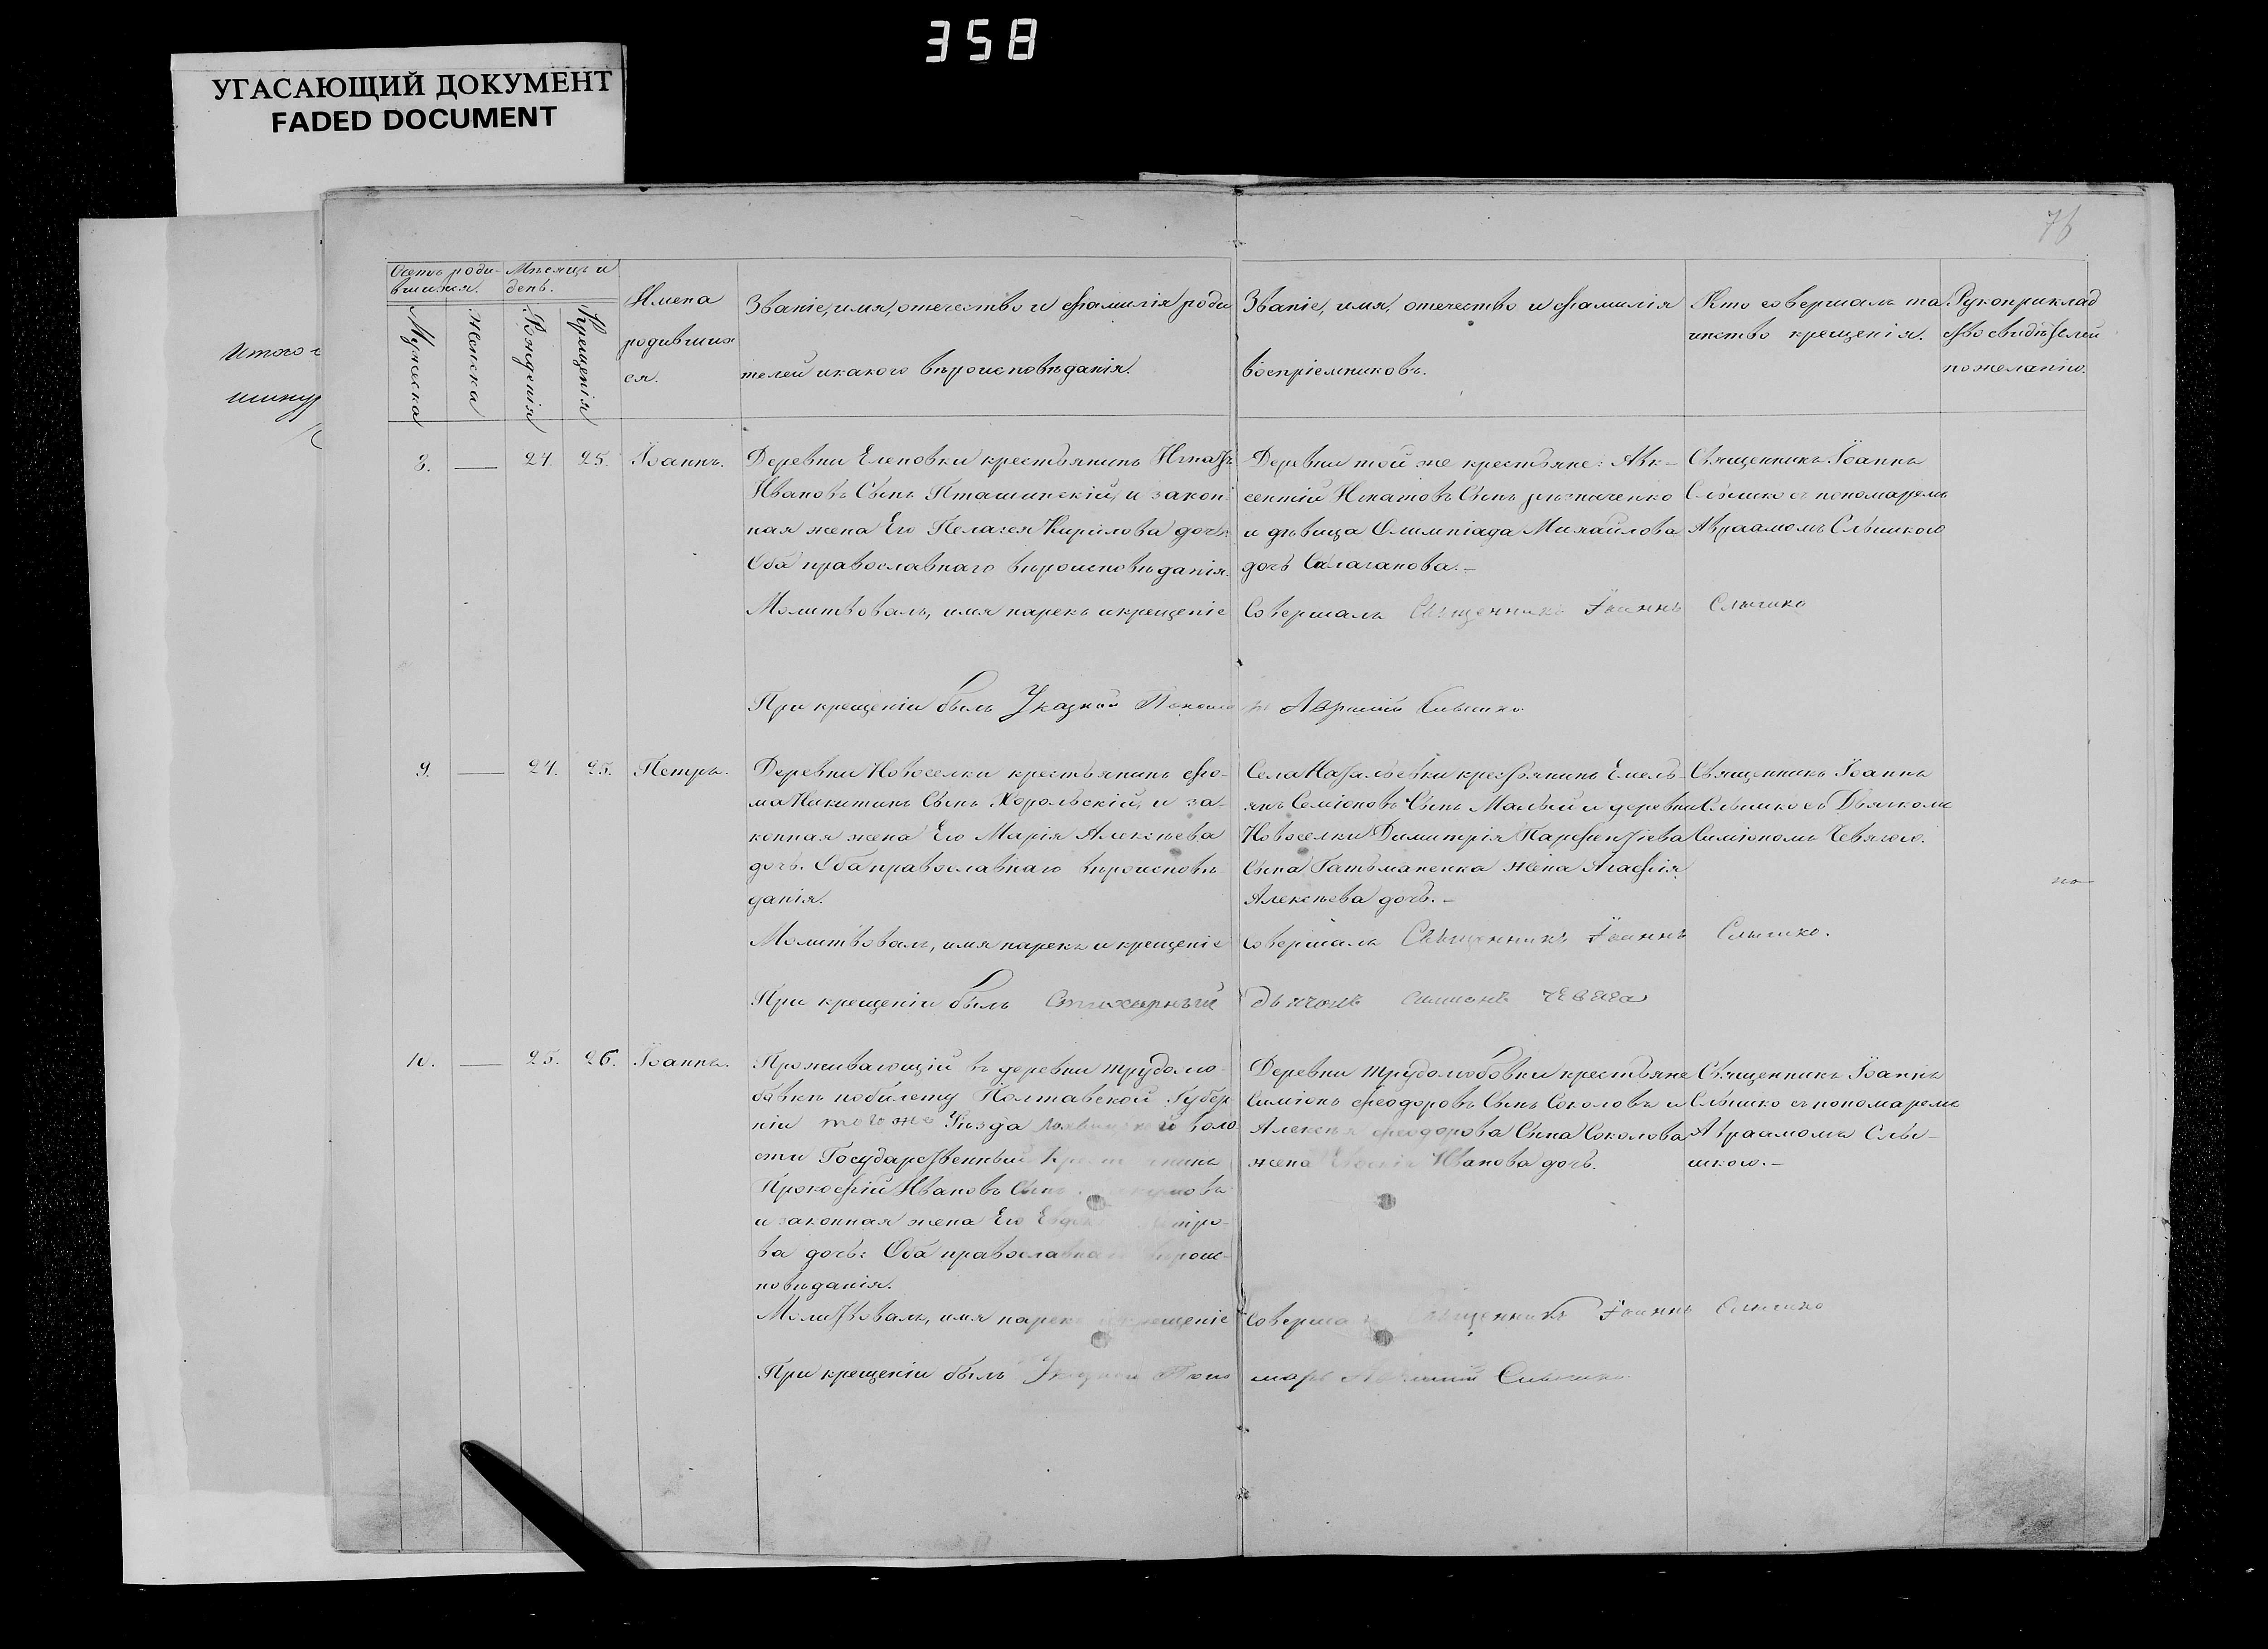 358
УГАСАЮЩИЙ ДОКУМЕНТ
FADED DOCUMENT
итого
76
Счетъ роди-
вшихся.
Мужеска
Женска
Мѣсяцъ и
день.
Рожденія
Крещенія
Имена
родивших
ся.
Званіе, имя, отечество и фамилія роди
телей и какого вѣроисповѣданія.
Званіе, имя, отечество и фамилія
воспріемниковъ.
Кто совершалъ та
инство крещенія.
Рукоприклад
ство свидѣтелей
по желанію.
8. — 24. 25. Іоаннъ.
Деревни Еленовки крестьянинъ Игнатъ
Ивановъ Сынъ Пташинскій, и закон-
ная жена Его Пелагея Кирилова дочь:
Оба православнаго вѣроисповѣданія.
Деревни той же крестьяне: Авк-
сентій Игнатовъ Сынъ
и дѣвица Олимпіада Михайлова
дочь Салаганова.–
Священникъ Іоаннъ
Слышко съ пономаремъ
Авраамомъ Слышкою
Молитвовалъ, имя нарекъ и крещеніе совершалъ Священникъ Іоаннъ Слышко
При крещеніи былъ Указной Пономарь Аврамій Слышко
9. — 24. 25. Петръ.
Деревни Новоселки крестьянинъ Фо-
ма Никитинъ Сынъ Хорольскій, и за-
конная жена Его Марія Алексѣева
дочь. Оба православнаго вѣроисповѣ-
данія.
Села Натальевки крестьянинъ Емель-
янъ Семіоновъ Сынъ Малый и деревни
Новоселки Димитрія Парфентіева
Сына Гатьманенка жена Агафія
Алексѣева дочь.–
Священникъ Іоаннъ
Слышко съ Дьячкомъ
Симіономъ Чевягою.
Молитвовалъ, имя нарекъ и крещеніе совершалъ Священникъ Іоаннъ Слышко.
При крещеніи былъ Стихарный дьячокъ Симионъ Чевяга
10. — 25. 26. Іоаннъ.
Проживающій въ деревни Трудолю-
бовкѣ по билету Полтавской Губер-
ніи того же Уѣзда воло
сти Государственный Крестьянинъ
Прокофій Ивановъ Сынъ
и законная жена Его Петро-
ва дочь: Оба православнаго вѣроис-
повѣданія.
Деревни Трудолюбовки крестьяне
Симіонъ Феодоровъ Сынъ Соколовъ и
Алексѣя Феодорова Сына Соколова
жена Иванова дочь.
Священникъ Іоаннъ
Слышко съ пономаремъ
Авраамомъ Слы-
шкою.–
Молитвовалъ, имя нарекъ и крещеніе совершалъ Священникъ Іоаннъ Слышко
При крещеніи былъ Указной Пономарь Аврамій Слышко